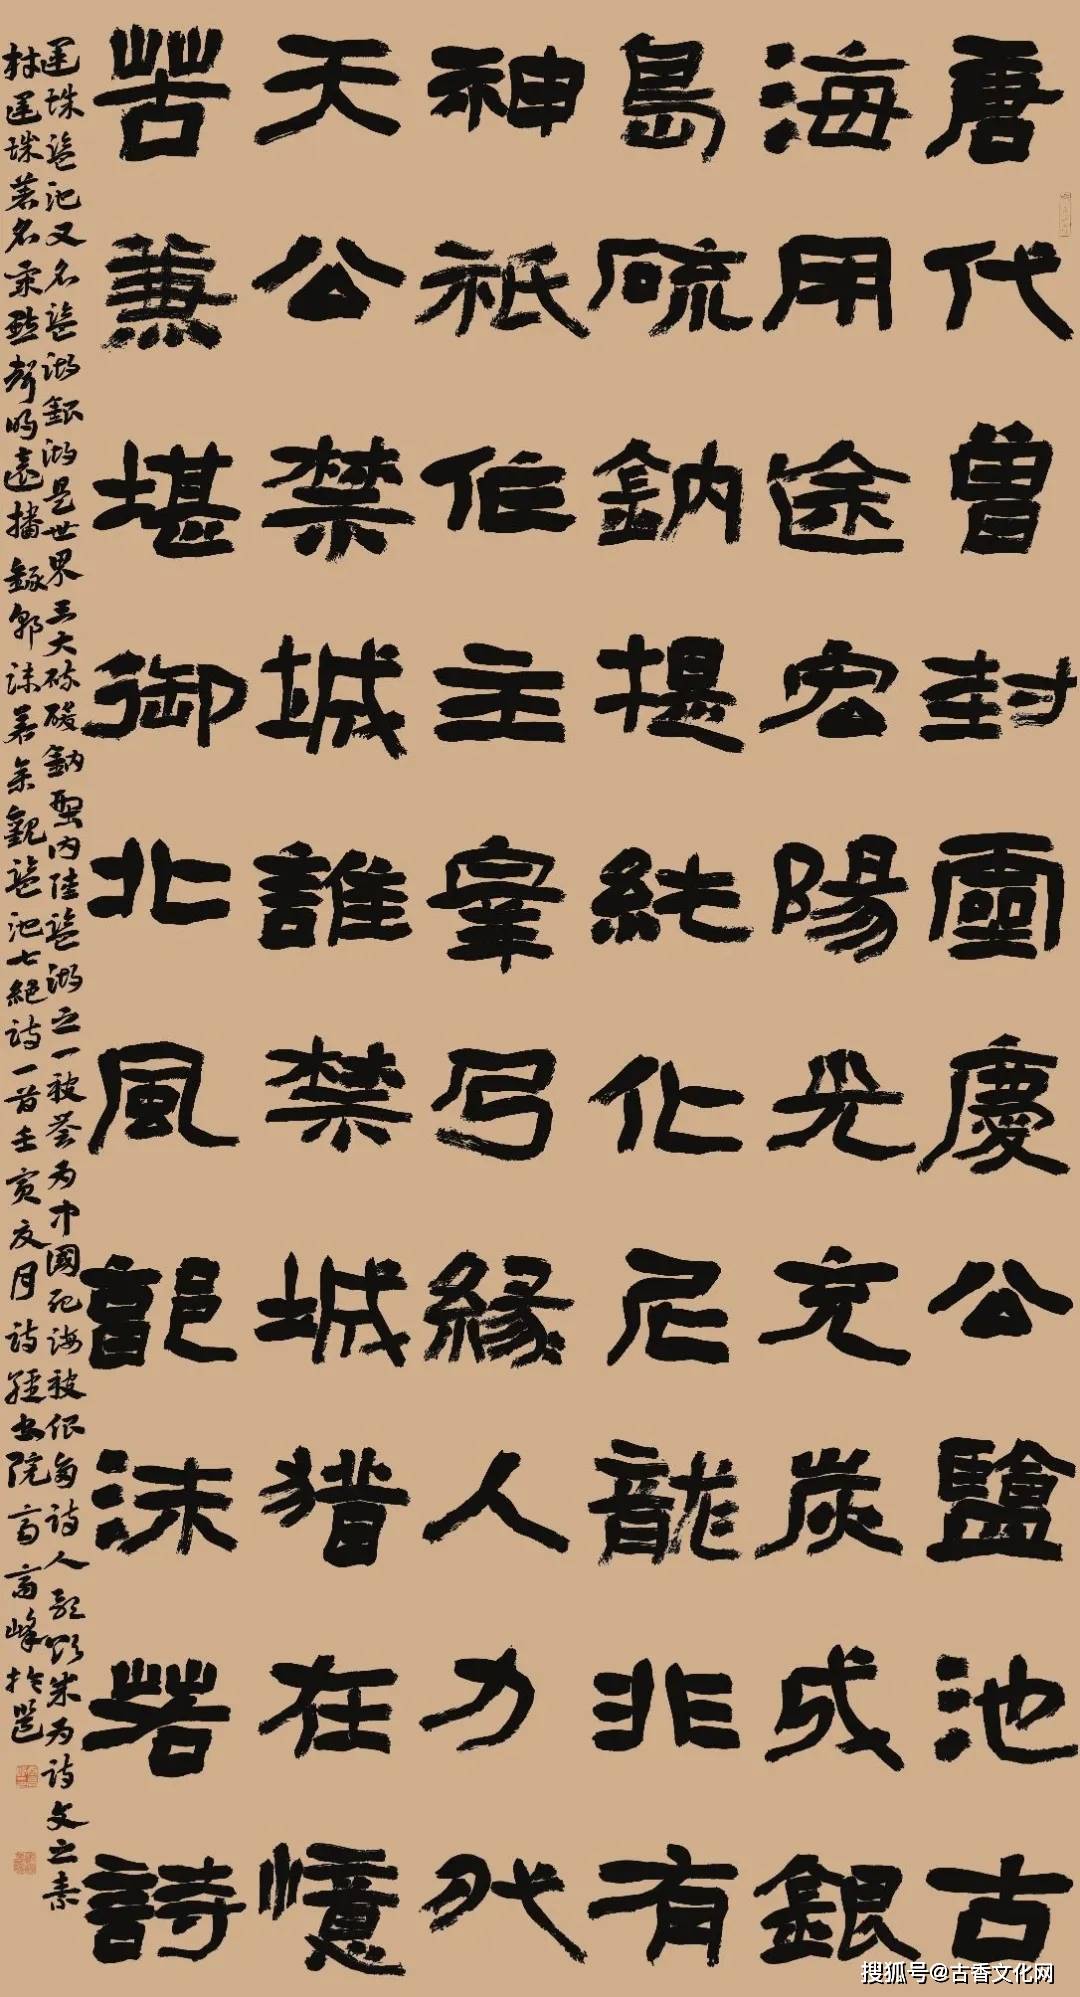 唐代曾封靈慶公鹽池古
海用途宏陽光充炭成銀
島硫鈉提純化尼龍非有
神祇作主宰乃緣人力代
天公禁城誰禁城猶在憶
昔兼堪御北風郭沫若詩
運城鹽池又名鹽湖銀湖是世界三大硫酸鈉型內陸鹽湖之一被譽為中國死海被很多詩人歌頌成為詩文之素
材運城著名景點聲鳴遠播錄郭沫若觀鹽池七絕詩一首壬寅夏月詩經書院高峰
搜狐号@古香文化网